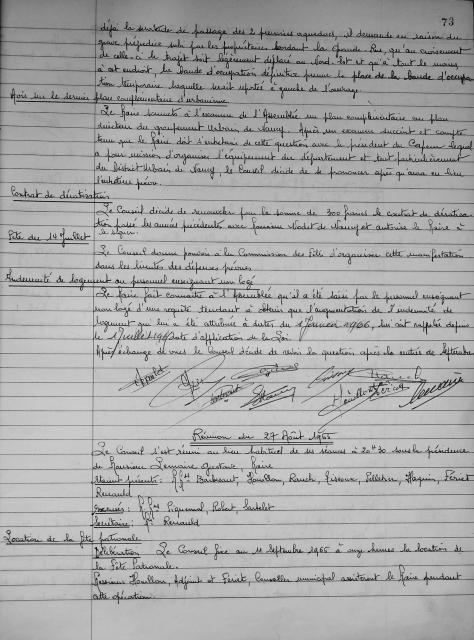 73
déjà la servitude de passage des 2 premiers aqueducs, il demande en raison du
grave préjudice subi par les propriétaires bordant la Grande Rue, qu'au croisement
de celle-ci le trajet soit légèrement déplacé au Nord-Est et qu'à tout le moins,
à cet endroit, la bande d'occupation définitive prenne la place de la bande d'occupa
tion temporaire laquelle serait reportée à gauche de l'ouvrage.
Avis sur le dernier plan complémentaire d'urbanisme
Le Maire soumets à l'examen de l'Assemblée un plan complémentaire au plan
directeur du groupement Urbain de Nancy. Après un examen succint et compte
tenu que le Maire doit s'entretenir de cette question avec le président du Capem lequel
a pour mission d'organiser l'équipement du département et tout particulièrement
du District Urbain de Nancy, le Conseil décide de se prononcer après qu'aura eu lieu
l'entretien prévu.
Contrat de dératisation
Le Conseil décide de renouveler pour la somme de 300 francs le contrat de dératisa
tion passé les années précédentes avec Monsieur de Nancy et autorise le Maire à
le signer.
Fête du 14 Juillet
Le Conseil donne pouvoir à la Commission des Fêtes d'organiser cette manifestation
dans les limites des dépenses prévues.
Indemnité de logement au personnel enseignant non logé
Le Maire fait connaître à l'Assemblée qu'il a été saisi par le personnel enseignant
non logé d'une requête tendant à obtenir que l'augmentation de l'indemnité de
logement qui lui a été attribuée à dater du 1er Janvier 1966, lui soit rappelée depuis
le 1er Juillet date d'application de la Loi.
Après échange de vues le Conseil décide de revoir la question après la rentrée de Septembre
Réunion du 27 Août 1966
Le Conseil s'est réuni au lieu habituel de ses séances à 20h30 sous la présidence
de Monsieur Lemoine Gustave, Maire
Étaient présents: Barbesant, Houillon, Rauch, Pelletier, Haquin, Ferret
Renauld
Excusés: Piquemal, Robert,
Secrétaire: Renauld
Location de la fête patronale
Délibération Le Conseil fixe au 11 Septembre 1966 à onze heures la location de
la Fête Patronale.
Messieurs Houillon, Adjoint et Ferret, Conseiller municipal assisteront le Maire pendant
cette opération.